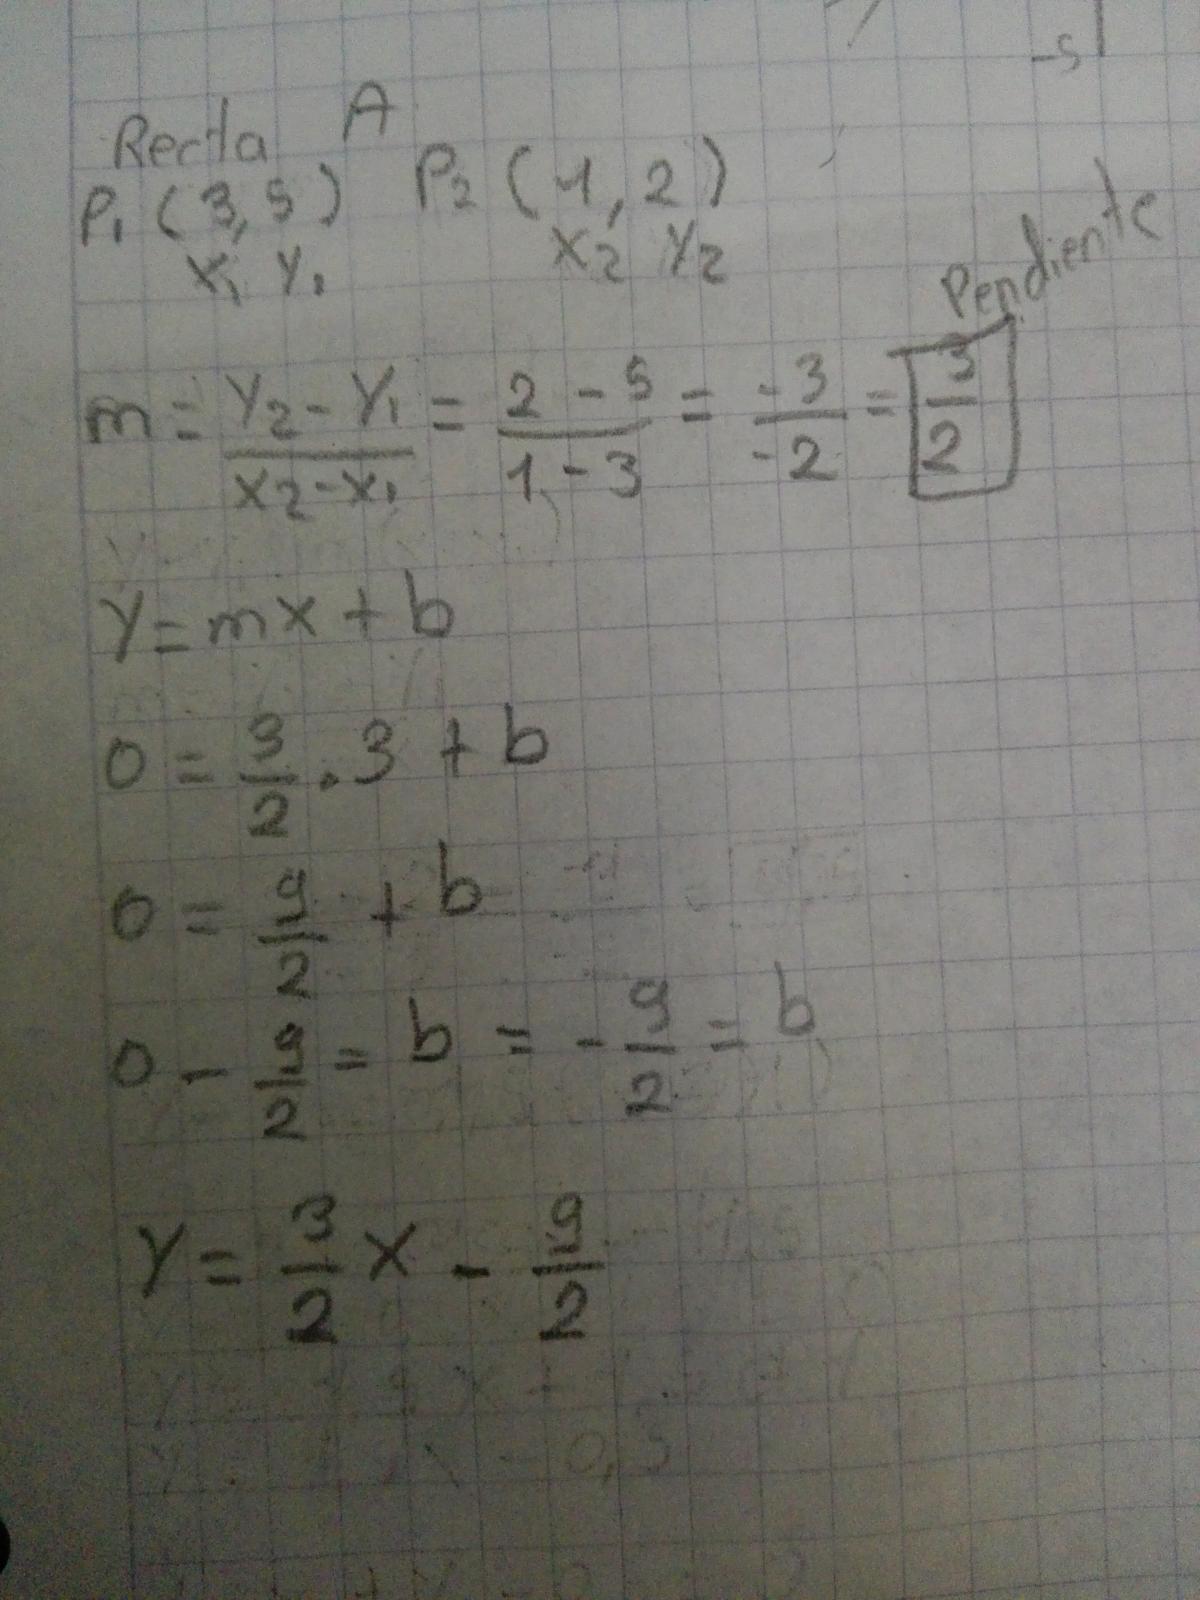 -5
Recta A
P₁ (3,5) P₂ (1,2)
X₁ Y₁ X₂ Y₂
Pendiente
m = Y₂-Y₁/X₂-X₁ = 2-5/1-3 = -3/-2 = 3/2
Y=mx+b
0 = 3/2 . 3 + b
0 = 9/2 + b
0 - 9/2 = b = -9/2 = b
Y = 3/2 X - 9/2